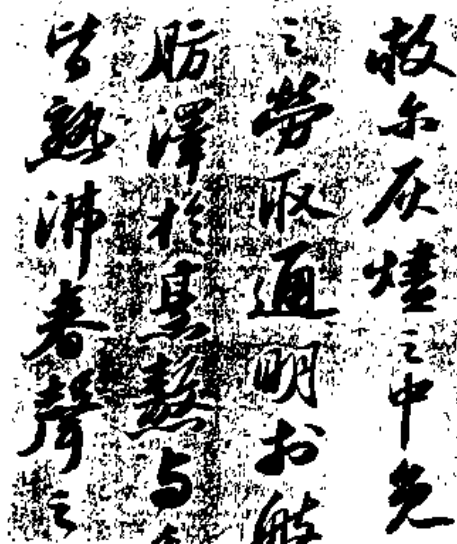 救尓灰燼之中免
之勞取通明扵
肪澤於烹熬与
皆熟沸春聲之